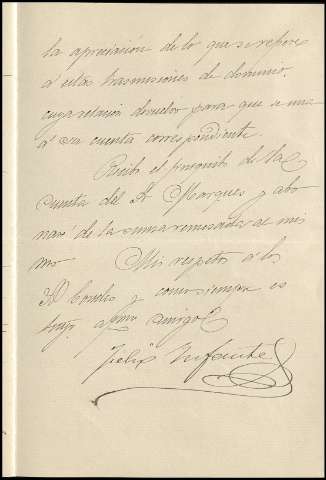 la apreciación de lo que se refiere
á estas trasmisiones de dominio,
cuya relación devuelvo para que se una
á su cuenta correspondiente.
Recibí el finiquito de la
cuenta del Sr Marques y abo
naré de la suma remesada al mis
mo Mis respetos á los
Condes y como siempre es
suyo amigo
Felix Infante